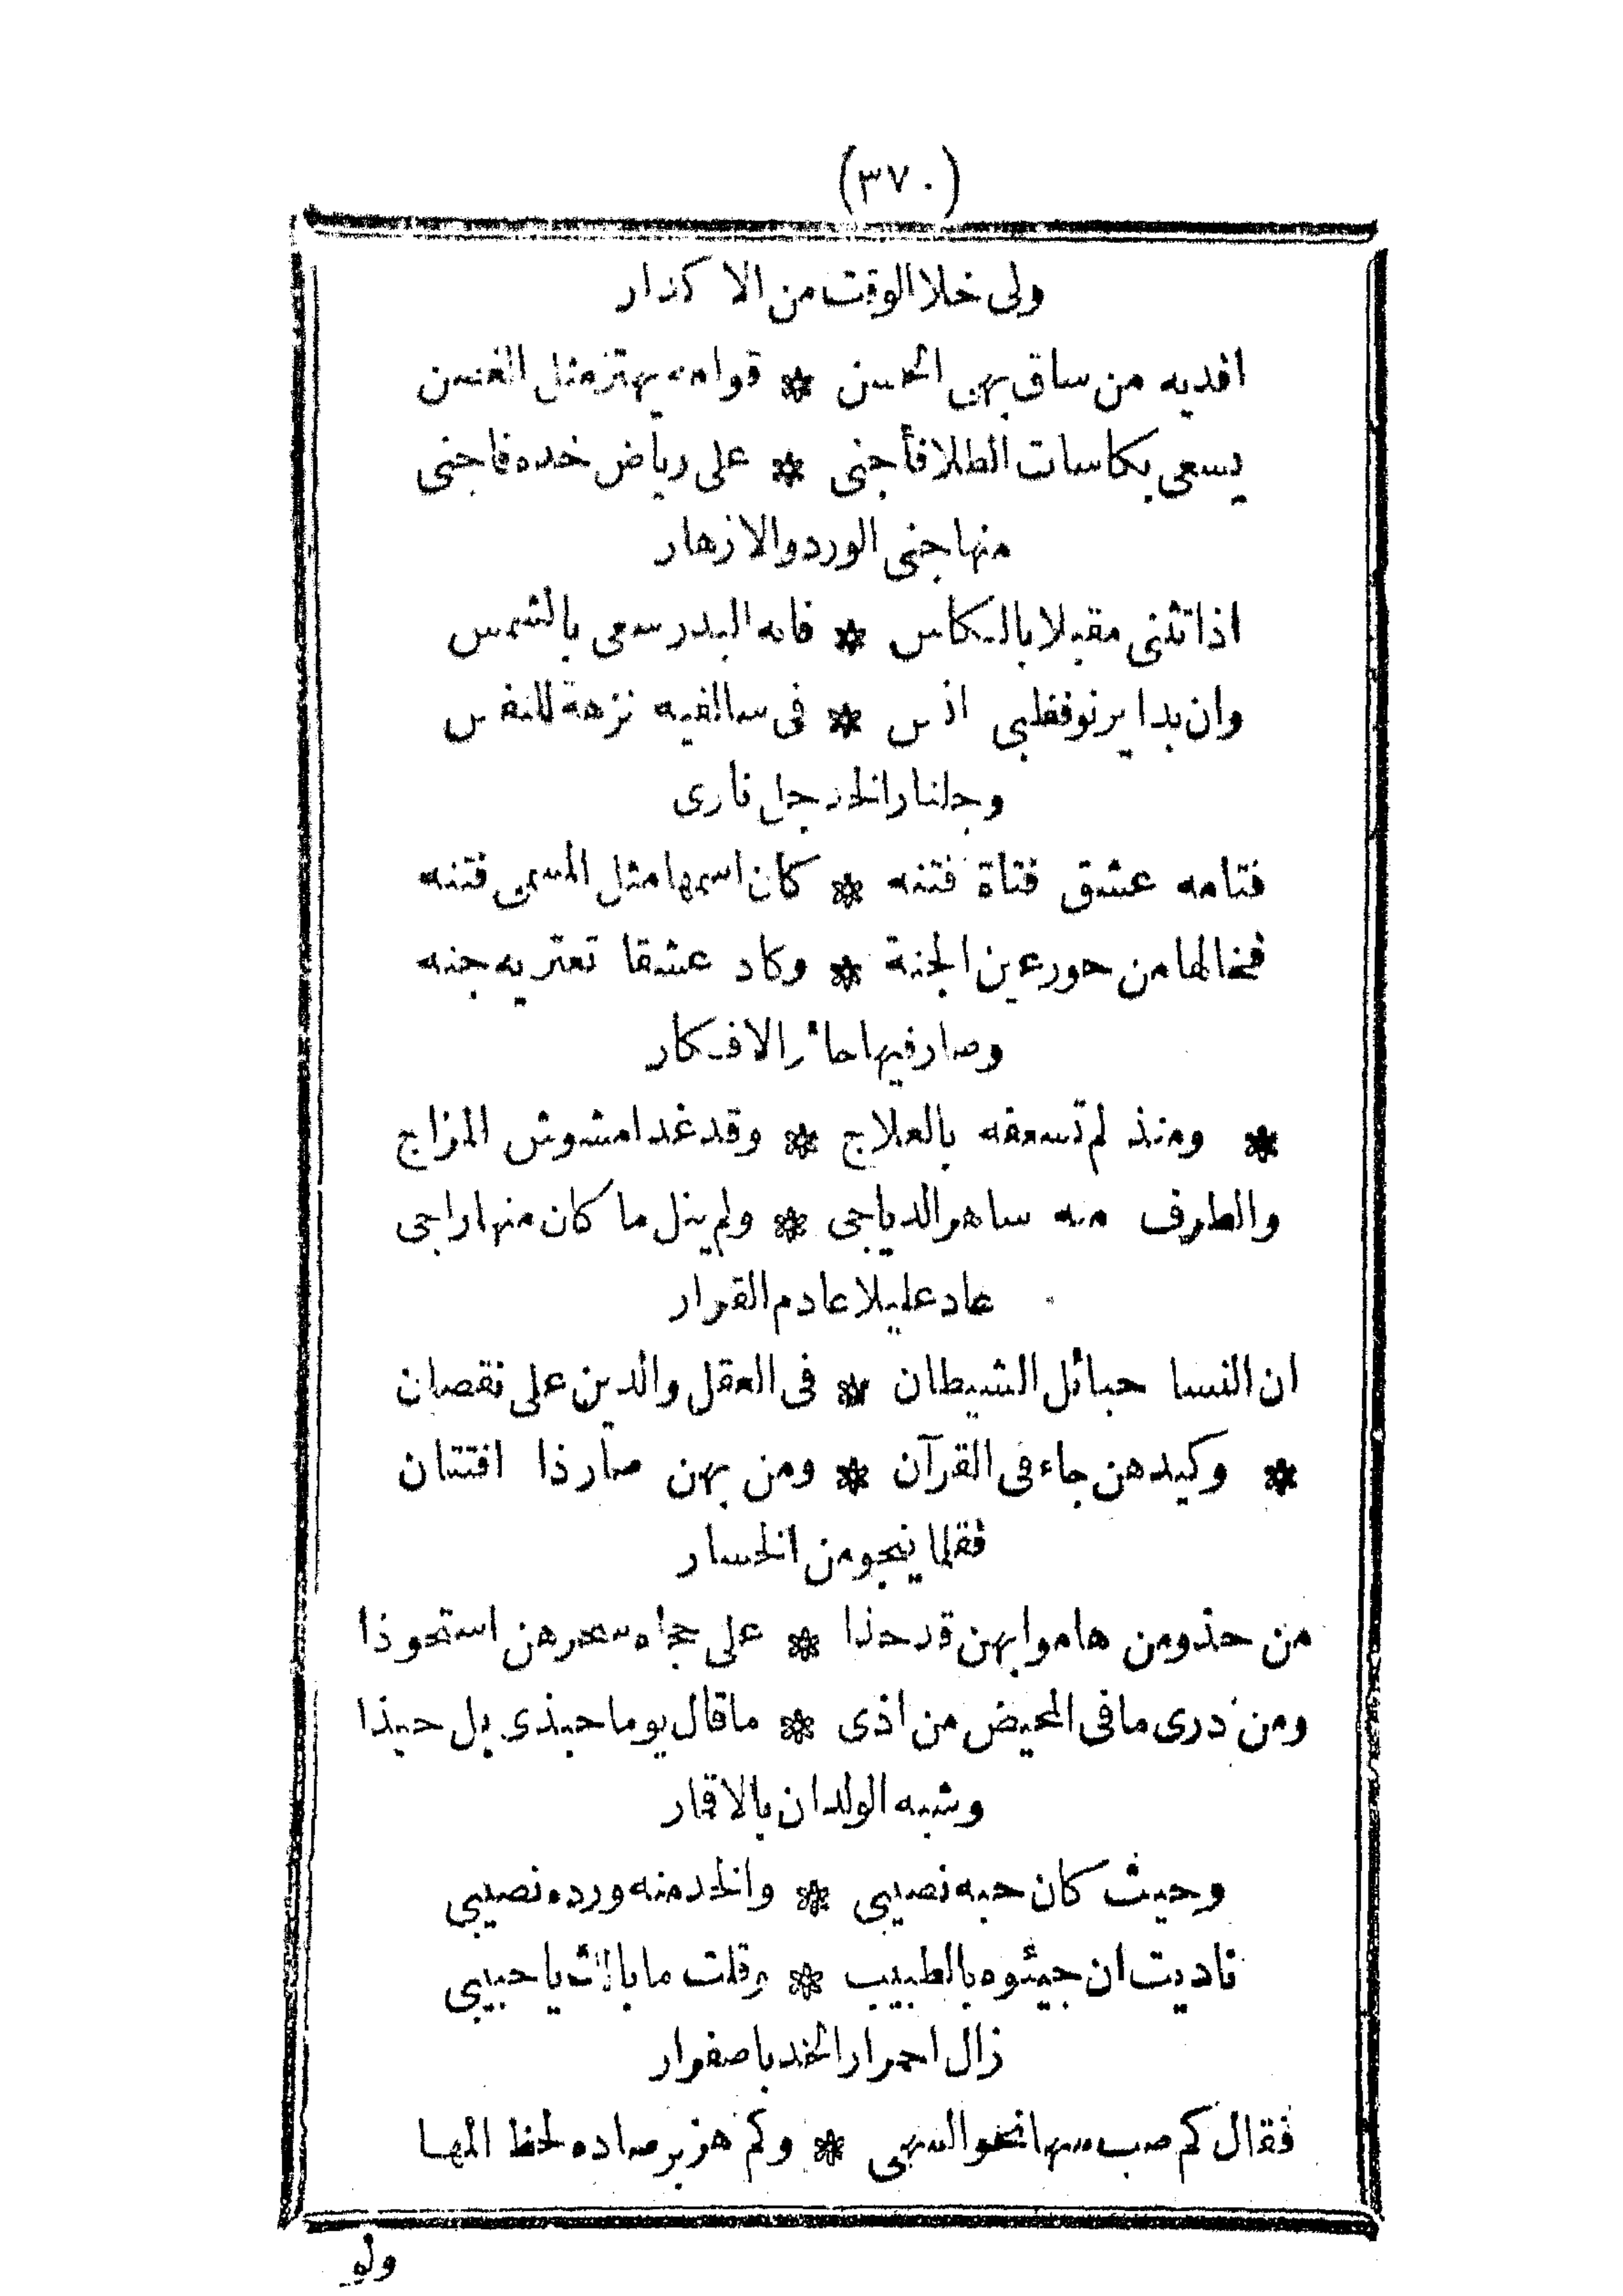 (٣٧٠)
ولى خلا الوقت من الاكدار
افديه من ساق بهى الحسن * قوامه يهتز مثل الغصن
يسعى بكاسات الطلا فأجنى * على رياض خده فاجنى
منها جنى الورد والازهار
اذا تثنى مقبلا بالكاس * فانه البدر سعى بالشمس
وان بدا يرنو فظبى انس * فى سالفيه نزهة للنفس
وجلنار الخد جل نارى
فتامه عشق فتاة فتنه * كان اسمها مثل المسمى فتنه
فخالها من حور عين الجنة * وكاد عشقا تعتريه جنه
وصار فيها حائر الافكار
* ومنذ لم تسعفه بالعلاج * وقد غدا مشوش المزاج
والطرف منه ساهر الدياجى * ولم ينل ما كان منها راجى
عاد عليلا عادم القرار
ان النسا حبائل الشيطان * فى العقل والدين على نقصان
* وكيدهن جاء فى القرآن * ومن بهن صار ذا افتتان
فقلما ينجو من الخسار
من حذو من هاموا بهن قد حذا * على حجاه سحرهن استحوذا
ومن درى ما فى المحيض من اذى * ما قال يوما حبذى بل حبذا
وشبه الولدان بالاقمار
وحيث كان حبه نصيبى * والخد منه ورده نصيبى
ناديت ان جيئوه بالطبيب * وقلت ما بالك يا حبيبى
زال احمرار الخد باصفرار
فقال كم صب سها نحو السهى * وكم هزبر صاده لحظ المها
وله